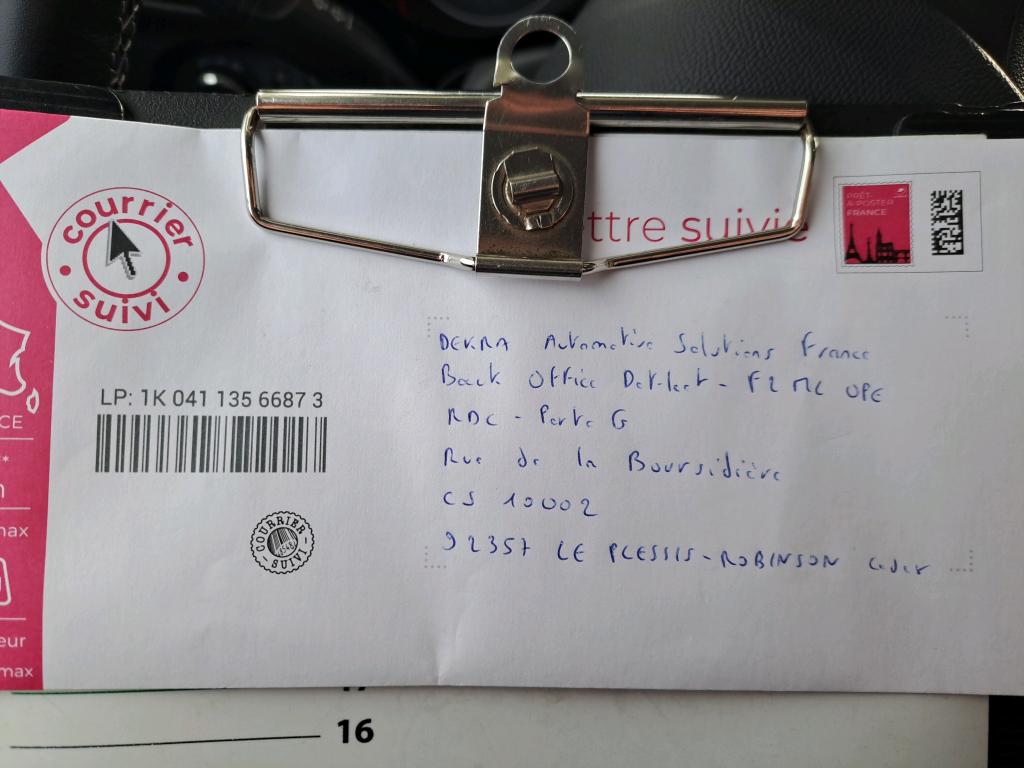 courrier
suivi
ttre suivie
PRÊT-
À-POSTER
FRANCE
DEKRA Automotive Solutions France
Back Office - F2ML OPE
RDC - Porte G
Rue de la Boursidière
CS 10002
92357 LE PLESSIS-ROBINSON Cedex
LP: 1K 041 135 6687 3
COURRIER
SUIVI
CE
max
eur
max
17
16